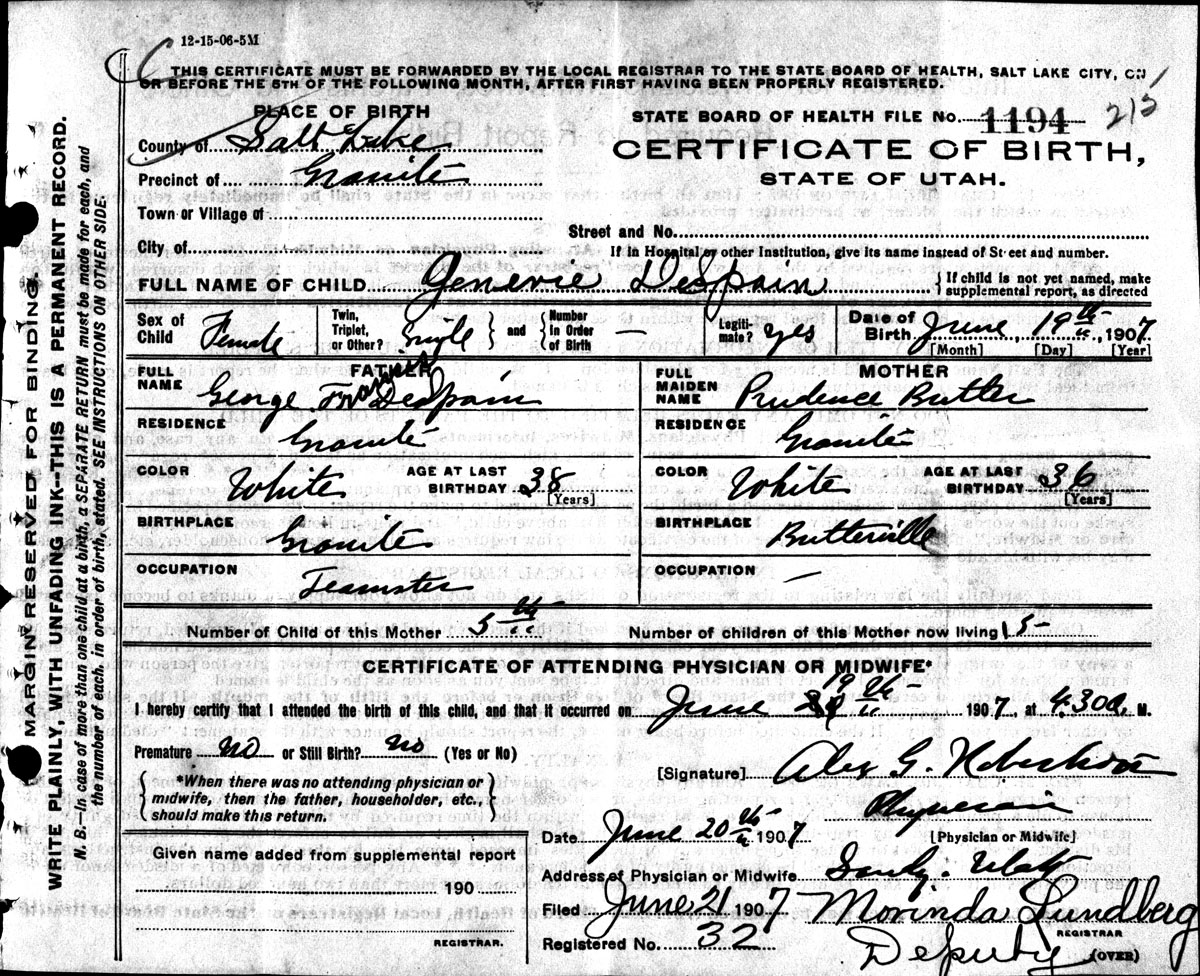 12-15-06-5M
THIS CERTIFICATE MUST BE FORWARDED BY THE LOCAL REGISTRAR TO THE STATE BOARD OF HEALTH, SALT LAKE CITY, ON
OR BEFORE THE 5TH OF THE FOLLOWING MONTH, AFTER FIRST HAVING BEEN PROPERLY REGISTERED.
MARGIN RESERVED FOR BINDING.
WRITE PLAINLY, WITH UNFADING INK--THIS IS A PERMANENT RECORD.
N. B.—In case of more than one child at a birth, a SEPARATE RETURN must be made for each, and
the number of each, in order of birth, stated. SEE INSTRUCTIONS ON OTHER SIDE.
PLACE OF BIRTH
County of Salt Lake
Precinct of Granite
Town or Village of
City of
STATE BOARD OF HEALTH FILE No. 1194 215
CERTIFICATE OF BIRTH,
STATE OF UTAH.
Street and No.
If in Hospital or other Institution, give its name instead of Street and number.
FULL NAME OF CHILD Generie Despain
If child is not yet named, make
supplemental report, as directed
Sex of Child Female
Twin, Triplet, or Other? Single and Number in Order of Birth —
Legiti-mate? yes
Date of Birth June 19th, 1907
[Month] [Day] [Year]
FATHER
FULL NAME George Francis Despain
RESIDENCE Granite
COLOR White AGE AT LAST BIRTHDAY 38 [Years]
BIRTHPLACE Granite
OCCUPATION Teamster
MOTHER
FULL MAIDEN NAME Prudence Butler
RESIDENCE Granite
COLOR White AGE AT LAST BIRTHDAY 36 [Years]
BIRTHPLACE Butterville
OCCUPATION —
Number of Child of this Mother 5th
Number of children of this Mother now living 5
CERTIFICATE OF ATTENDING PHYSICIAN OR MIDWIFE*
I hereby certify that I attended the birth of this child, and that it occurred on June 19th 1907, at 4.30 a. M.
Premature no or Still Birth? no (Yes or No)
*When there was no attending physician or
midwife, then the father, householder, etc.,
should make this return.
[Signature] Alex G. Robertson
Physician
[Physician or Midwife]
Date June 20th 1907
Address of Physician or Midwife Sandy. Utah
Given name added from supplemental report
190
REGISTRAR.
Filed June 21 1907 Morinda Lundberg
REGISTRAR
Registered No. 32 Deputy (OVER)